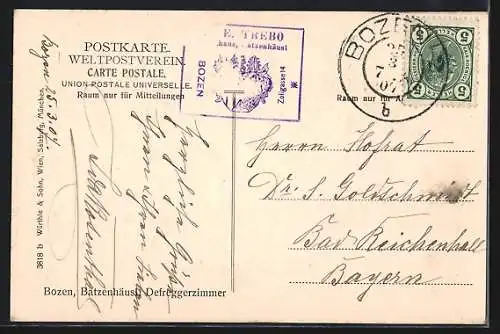 POSTKARTE.
WELTPOSTVEREIN.
CARTE POSTALE.
UNION POSTALE UNIVERSELLE.
Raum nur für Mitteilungen
E. TREBO
BOZEN
Zollgasse 14
BOZEN
25
3
7
07
b
5
5
5
5
Raum nur für
Bozen 25.3.07.
Herzliche Grüße
3818 b Würthle & Sohn, Wien, Salzburg, München.
Herrn Hofrat
Dr. S. Goldschmidt
Bad Reichenhall
Bayern
Bozen, Batzenhäusl Defreggerzimmer